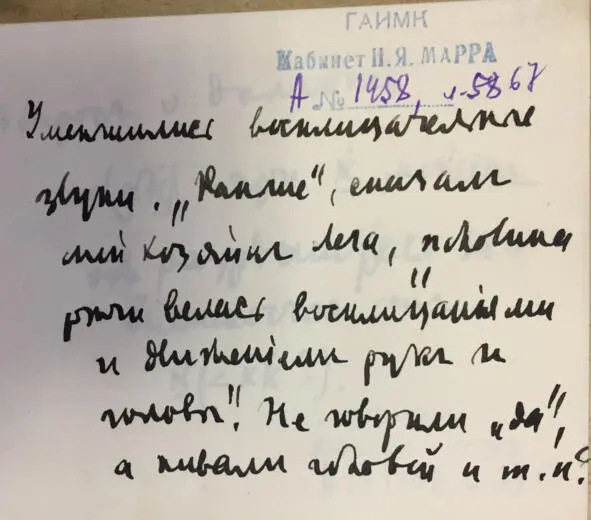 ГАИМК
Кабинет Н.Я. МАРРА
А № 1458, л. 58 67
Уменьшились восклицательные
звуки. „Раньше“, сказал
мой хозяйин Лега, „половина
рѣчи велась восклицаніями
и движеніем руки и
головы“. Не говорили „да“,
а кивали головой и т. п.